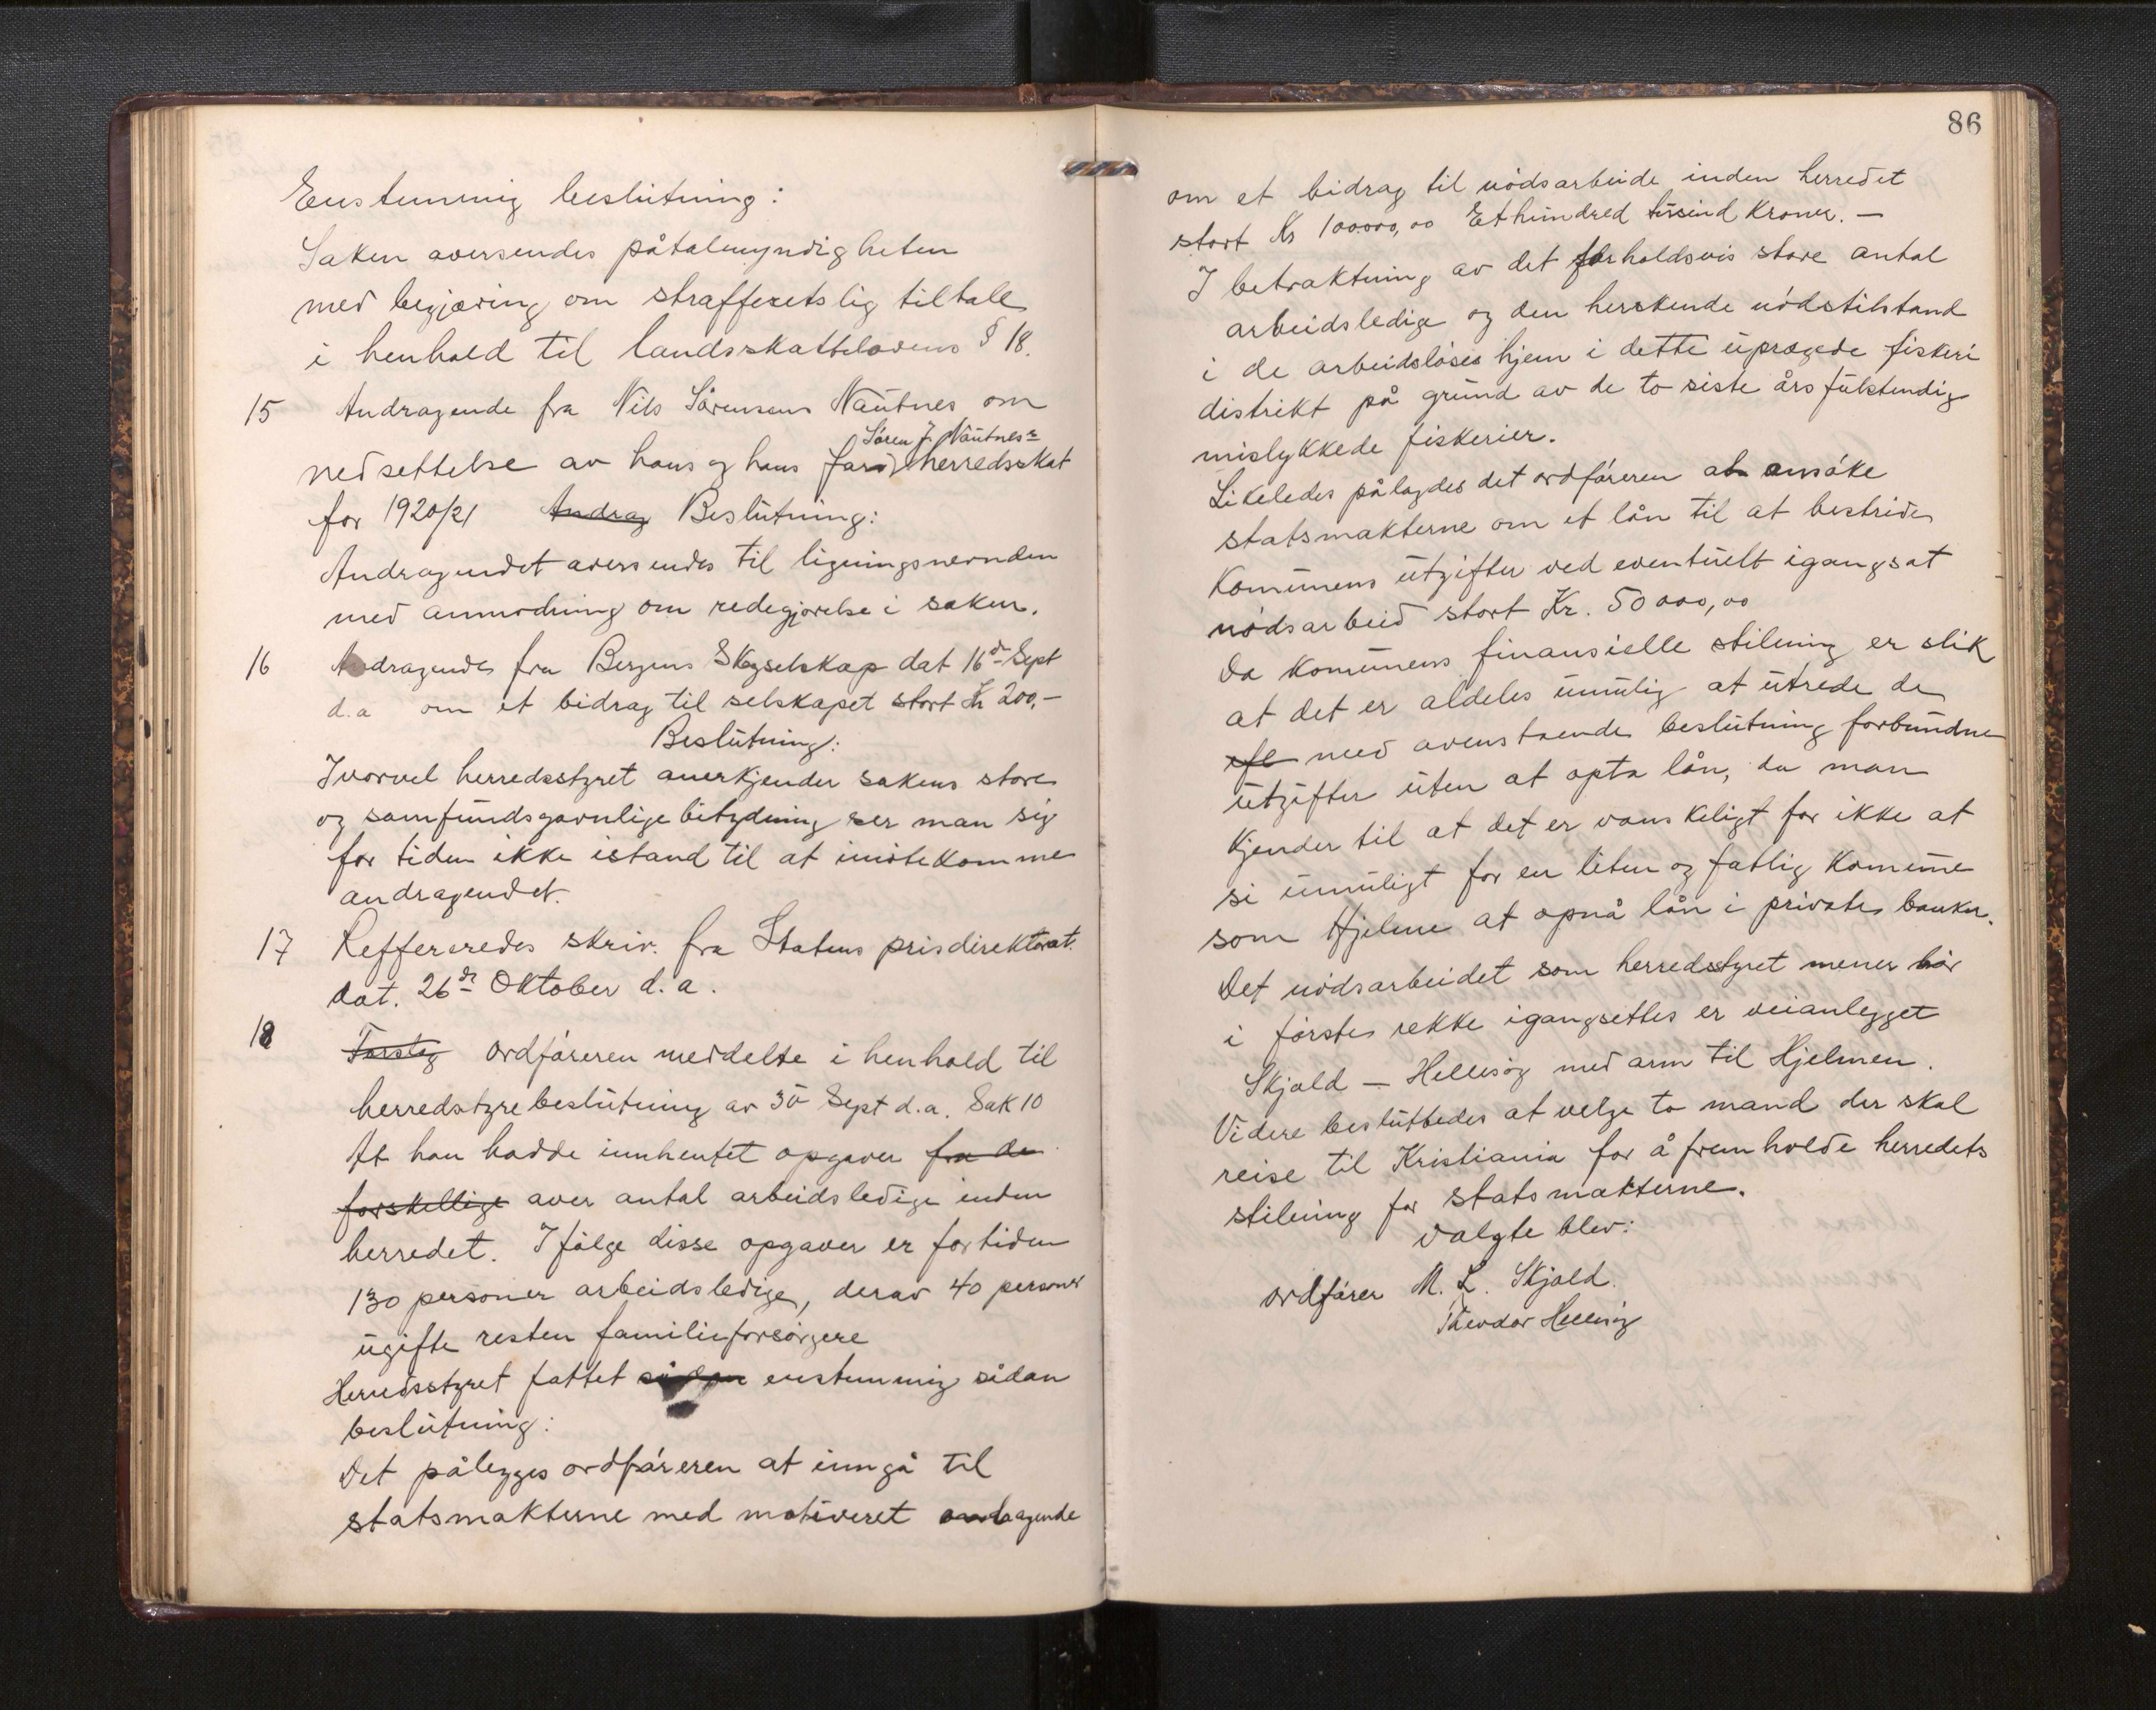 Enstemmig beslutning:
Saken oversendes påtalemyndigheten
med begjæring om strafferetslig tiltale
i henhold til landsskattelovens § 18.
15 Andragende fra Nils Sørensen Nautnes om
Søren J. Nautnes's
nedsettelse av hans og hans fars herredsskat
for 1920/21 Andrag Beslutning:
Andragendet oversendes til ligningsnevnden
med anmodning om redegjørelse i saken.
16 Andragende fra Bergens Skogselskap dat 16de Sept
d.a om et bidrag til selskapet stort Kr 200,-
Beslutning:
Ihvorvel herredsstyret anerkjender sakens store
og samfundsgavnlige betydning ser man sig
for tiden ikke istand til at imøtekomme
andragendet.
17 Reffereredes skriv. fra Statens prisdirektorat.
dat. 26de Oktober d.a.
18 Forslag ordføreren meddelte i henhold til
herredstyrebeslutning av 30 Sept d.a. Sak 10
At han hadde innhentet opgaver fra de
forskellige over antal arbeidsledige inden
herredet. Ifølge disse opgaver er for tiden
130 personer arbeidsledige, derav 40 personer
ugifte resten familieforsørgere
Herredsstyret fattet sådan enstemmig sådan
beslutning:
Det pålegges ordføreren at inngå til
statsmakterne med motiveret andragende
86
om et bidrag til nødsarbeide inden herredet
stort Kr 100000,00 Ethundred tusind Kroner. —
I betraktning av det forholdsvis store antal
arbeidsledige og den herskende nødstilstand
i de arbeidsløses hjem i dette uprægede fiskeri
distrikt på grund av de to siste års fulstendig
mislykkede fiskerier.
Likeledes pålagdes det ordføreren at ansøke
statsmakterne om et lån til at bestride
Komunens utgifter ved eventuelt igangsat
nødsarbeid stort Kr. 50000,00
Da Komunens finansielle stilning er slik
at det er aldeles umulig at utrede de
med ovenstaende beslutning forbundne
utgifter uten at opta lån, da man
kjender til at det er vanskeligt for ikke at
si umuligt for en liten og fatlig Komune
som Hjelme at opnå lån i private banker.
Det nødsarbeidet som herredstyret mener bør
i første rekke igangsettes er veianlegget
Skjold — Hellesøy med arm til Hjelmen.
Videre besluttedes at velge to mand der skal
reise til Kristiania for å fremholde herredets
stilning for statsmakterne.
Valgte blev:
ordfører M. L. Skjold.
Theodor Hellesøy